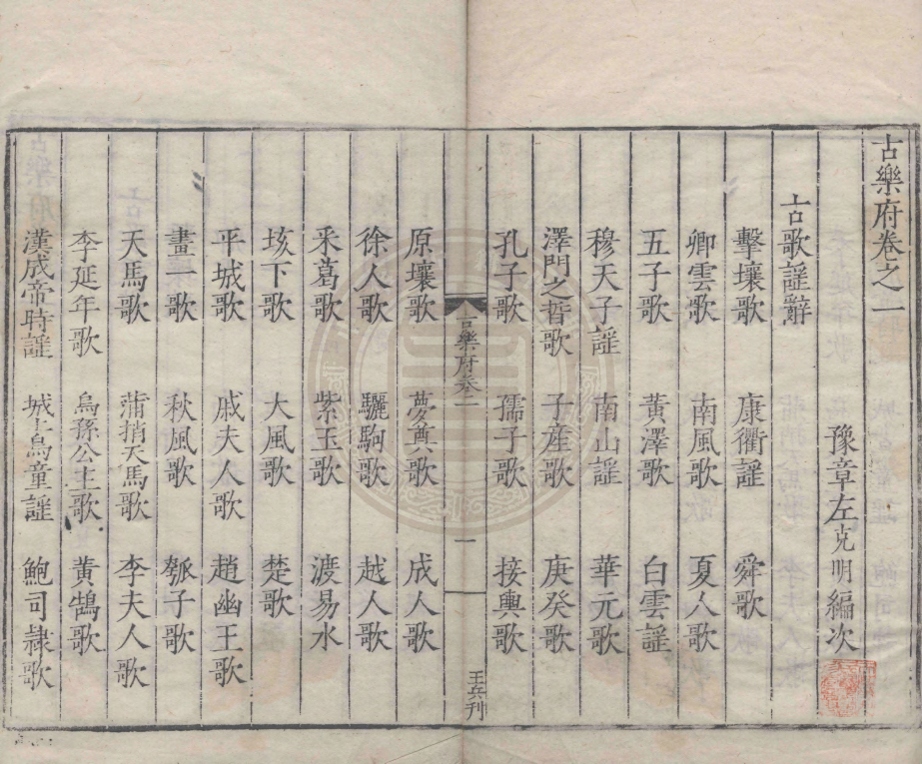 古樂府卷之一
豫章左克明編次
古歌謡辭
擊壤歌 康衢謡 舜歌
卿雲歌 南風歌 夏人歌
五子歌 黃澤歌 白雲謡
穆天子謡 南山謡 華元歌
澤門之晳歌 子産歌 庚癸歌
孔子歌 孺子歌 接輿歌
古樂府卷一 一 王兵刋
原壤歌 夢奠歌 成人歌
徐人歌 驪駒歌 越人歌
采葛歌 紫玉歌 渡易水
垓下歌 大風歌 楚歌
平城歌 戚夫人歌 趙幽王歌
畫一歌 秋風歌 瓠子歌
天馬歌 蒲捎天馬歌 李夫人歌
李延年歌 烏孫公主歌 黃鵠歌
漢成帝時謡 城上烏童謡 鮑司隸歌